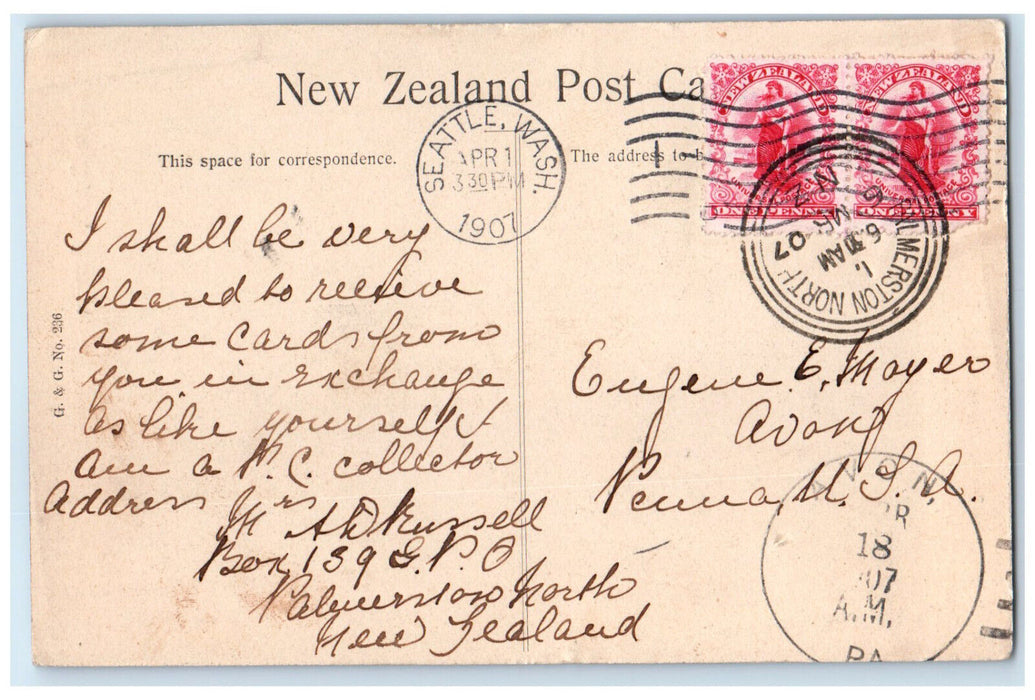 New Zealand Post Ca
This space for correspondence.
The address to b
SEATTLE, WASH.
APR 1
3 30 PM
1907
NEW ZEALAND
UNIVERSAL
ONE PENNY
NEW ZEALAND
UNIVERSAL
ONE PENNY
PALMERSTON NORTH
N.Z
1
MR 07
6.30 AM
I shall be very
pleased to receive
some cards from
you in exchange
as like yourself I
am a P.C. collector
Address Mrs
A D Russell
Box 139 G.P.O
Palmerston North
New Zealand
G. & G. No. 236
Eugene E. Moyer
Avon
Penna, U.S.A.
AVON,
APR
18
07
A.M.
PA